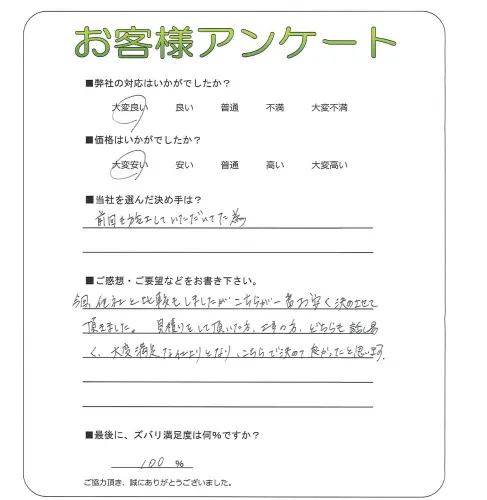 お客様アンケート
■弊社の対応はいかがでしたか？
大変良い 良い 普通 不満 大変不満
■価格はいかがでしたか？
大変安い 安い 普通 高い 大変高い
■当社を選んだ決め手は？
前回も施工していただいてた為
■ご感想・ご要望などをお書き下さい。
今回、他社と比較もしましたがこちらが一番お安く決めさせて
頂きました。 見積りをして頂いた方、工事の方、どちらも話し易
く、大変満足な仕上りとなり、こちらで決めて良かったと思います。
■最後に、ズバリ満足度は何%ですか？
100 %
ご協力頂き、誠にありがとうございました。